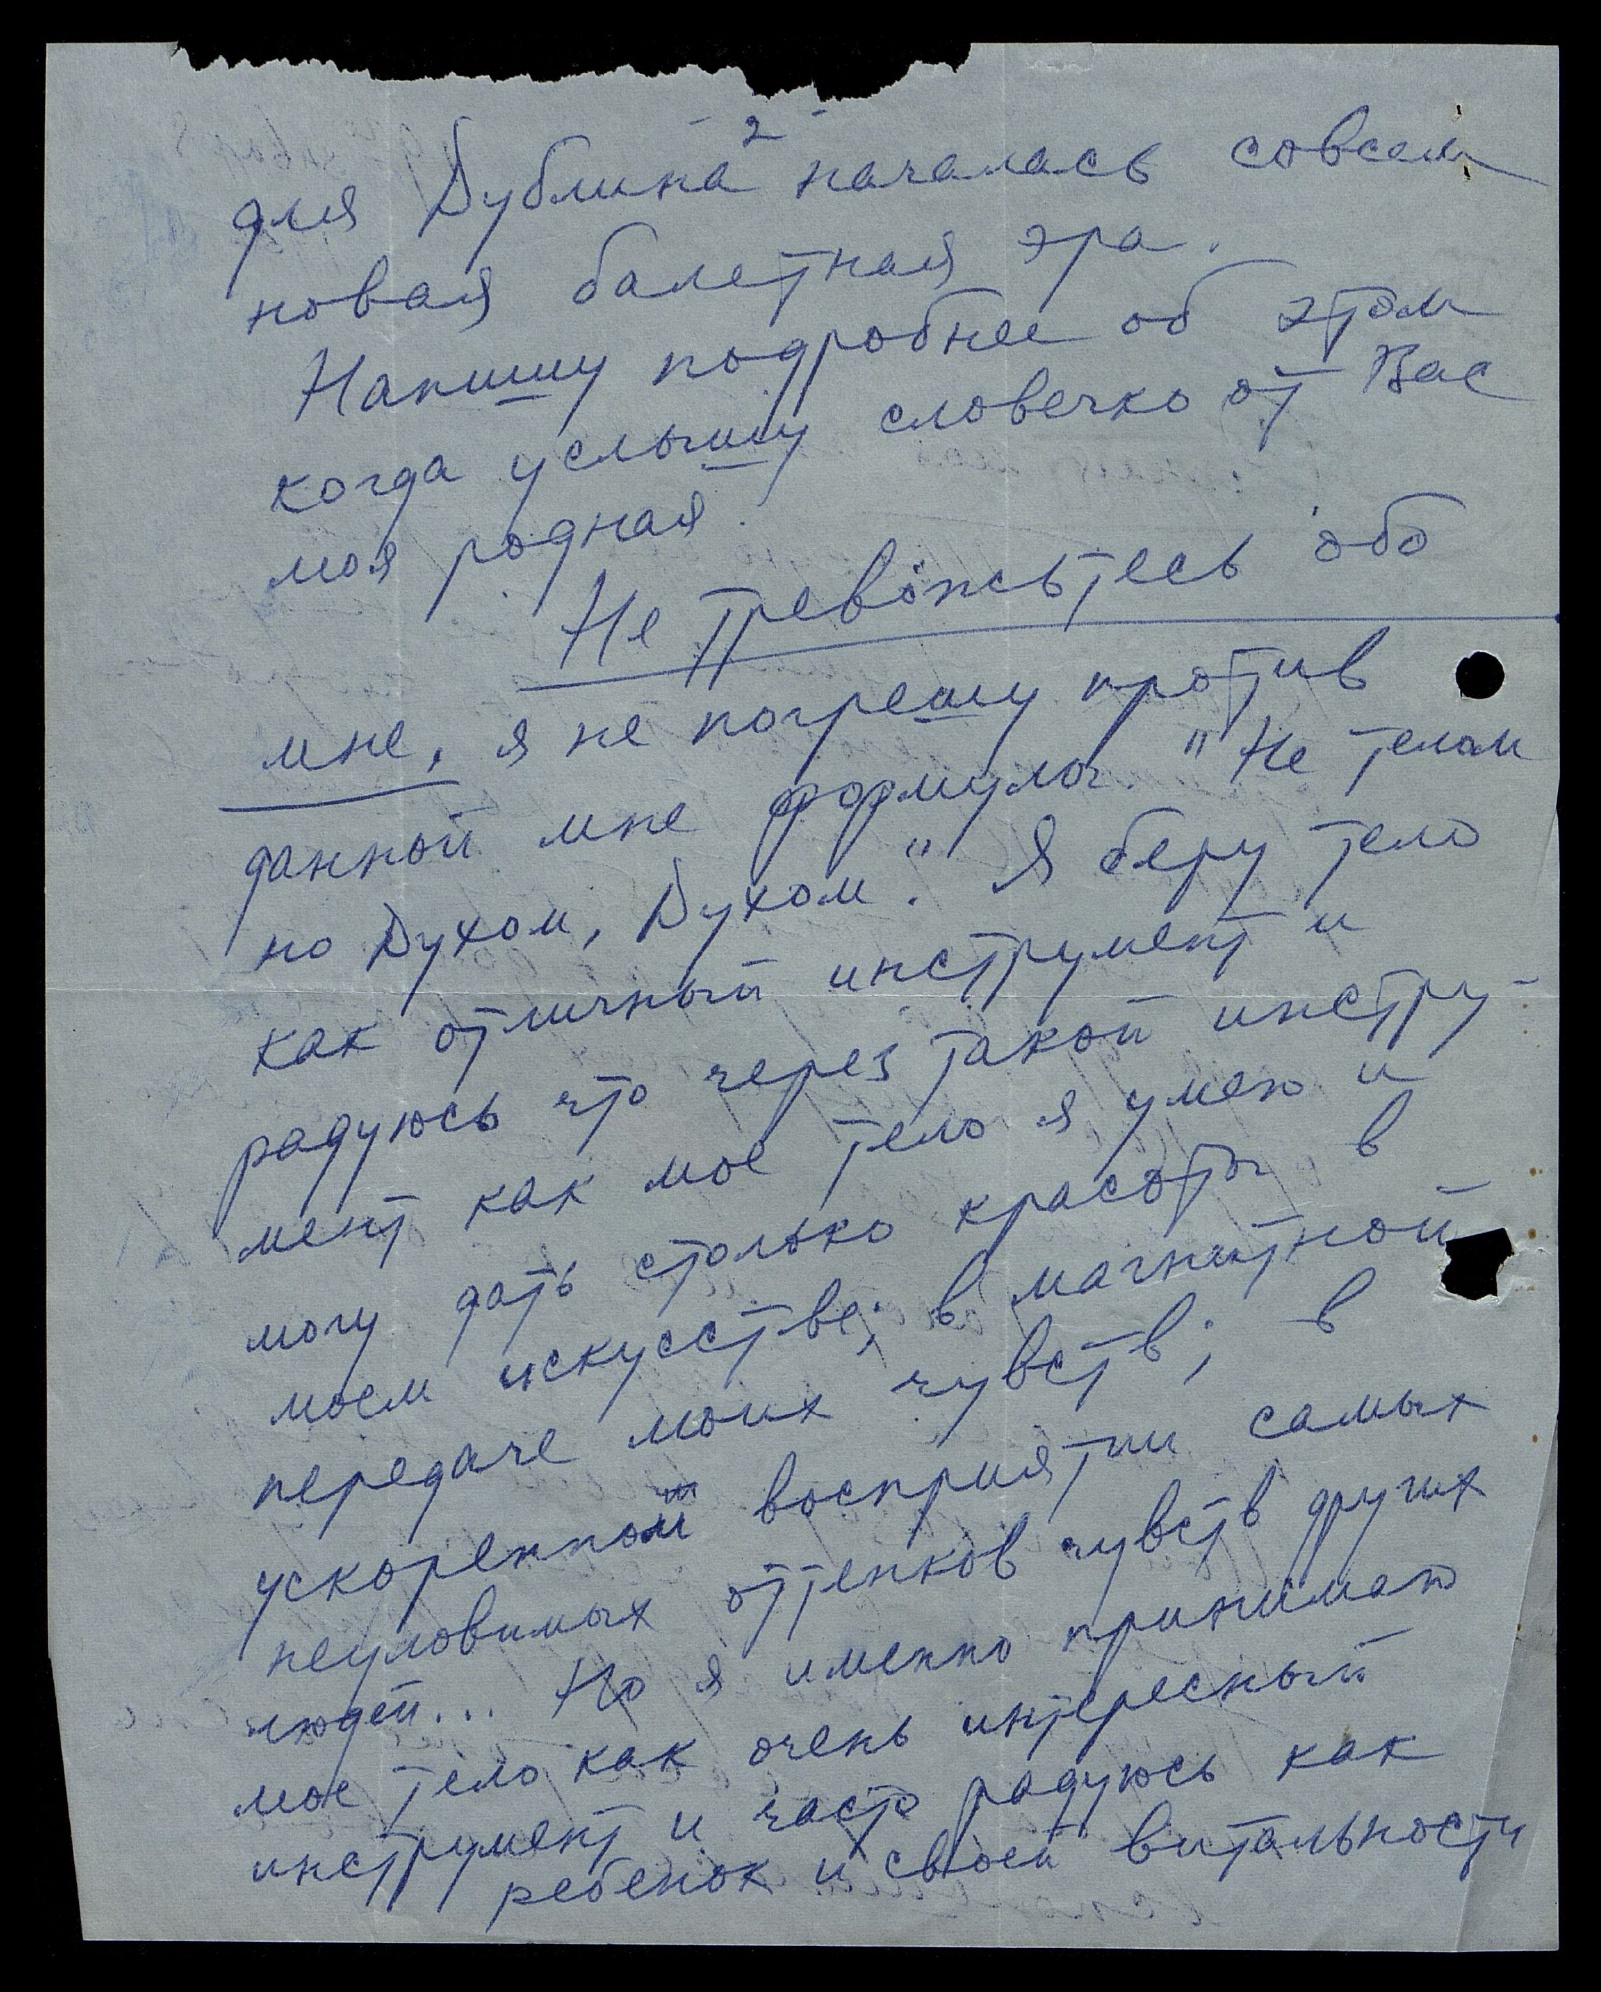 - 2 -
для Дублина началась совсем
новая балетная эра.
Напишу подробнее об этом
когда услышу словечко от Вас
моя родная.
Не тревожьтесь обо
мне, я не погрешу против
данной мне формулы "Не телом
но Духом, Духом". Я беру тело
как отличный инструмент и
радуюсь что через такой инстру-
мент как мое тело я умею и
могу дать столько красоты в
моем искусстве; в магнитной
передаче моих чувств; в
ускоренной восприятии самых
неуловимых оттенков чувств других
людей... Но я именно принимаю
мое тело как очень интересный
инструмент и часто радуюсь как
ребенок и своей витальности